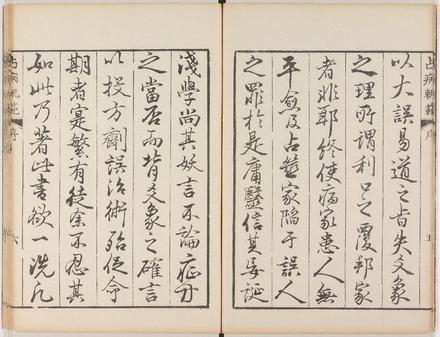 以大誤易道之旨失爻象
之理所謂利口之覆邦家
者非耶終使病家患人無
平愈及占筮家陷于誤人
之罪於是庸醫信其妄誕
淺學尚其妖言不論症因
之當否而背爻象之確言
以投方劑誤治術殆促命
期者寔繁有徒余不忍其
如此乃著此書欲一洗凡
占病軌範 序